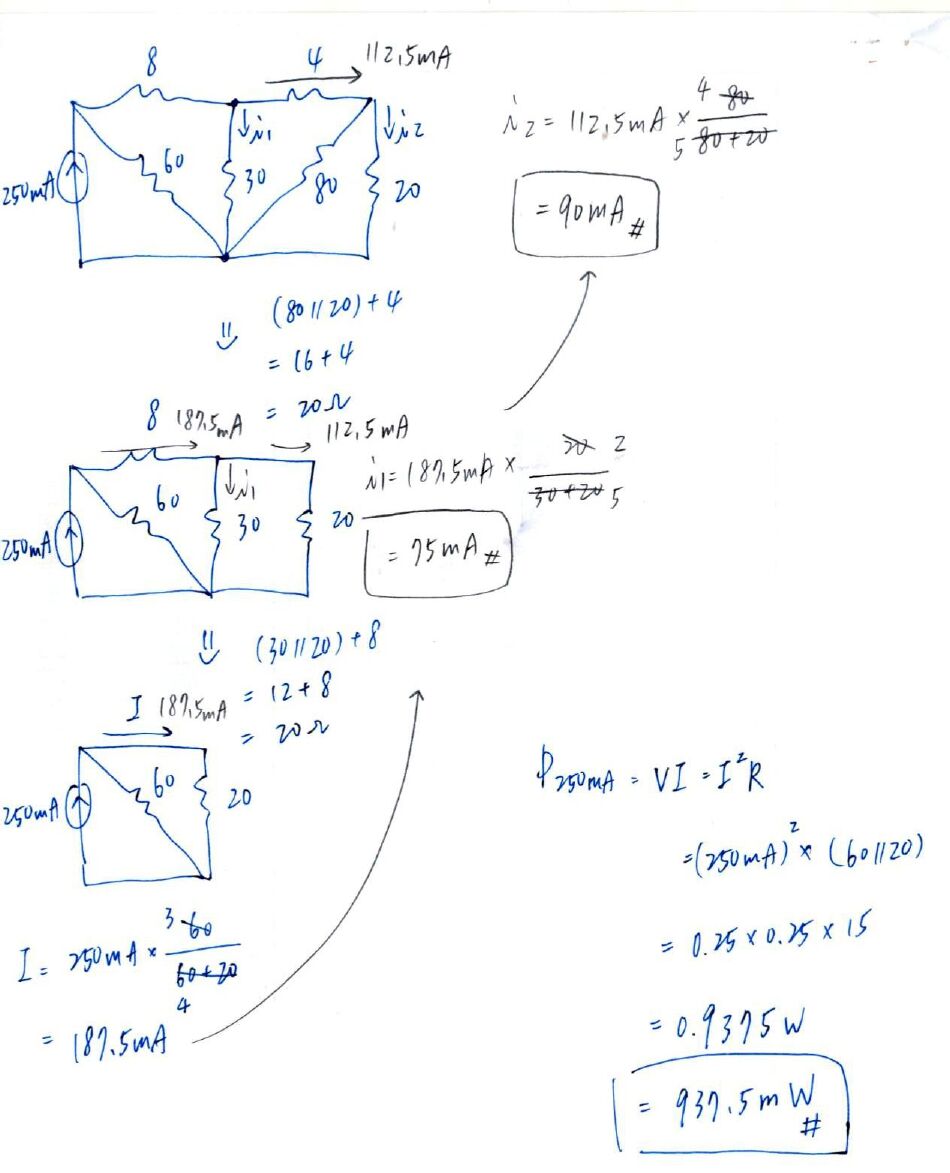 8
4
112.5mA
250mA
60
↓i1
30
80
↓i2
20
i2 = 112.5mA × 4 80 / 5 80+20
= 90mA #
⇓ (80 // 20) + 4
= 16 + 4
= 20Ω
8
187.5mA
112.5mA
250mA
60
↓i1
30
20
i1 = 187.5mA × 20 2 / 30+20 5
= 75mA #
⇓ (30 // 20) + 8
= 12 + 8
= 20Ω
I 187.5mA
250mA
60
20
I = 250mA × 3 60 / 60+20 4
= 187.5mA
P250mA = VI = I²R
= (250mA)² × (60 // 20)
= 0.25 × 0.25 × 15
= 0.9375W
= 937.5mW #